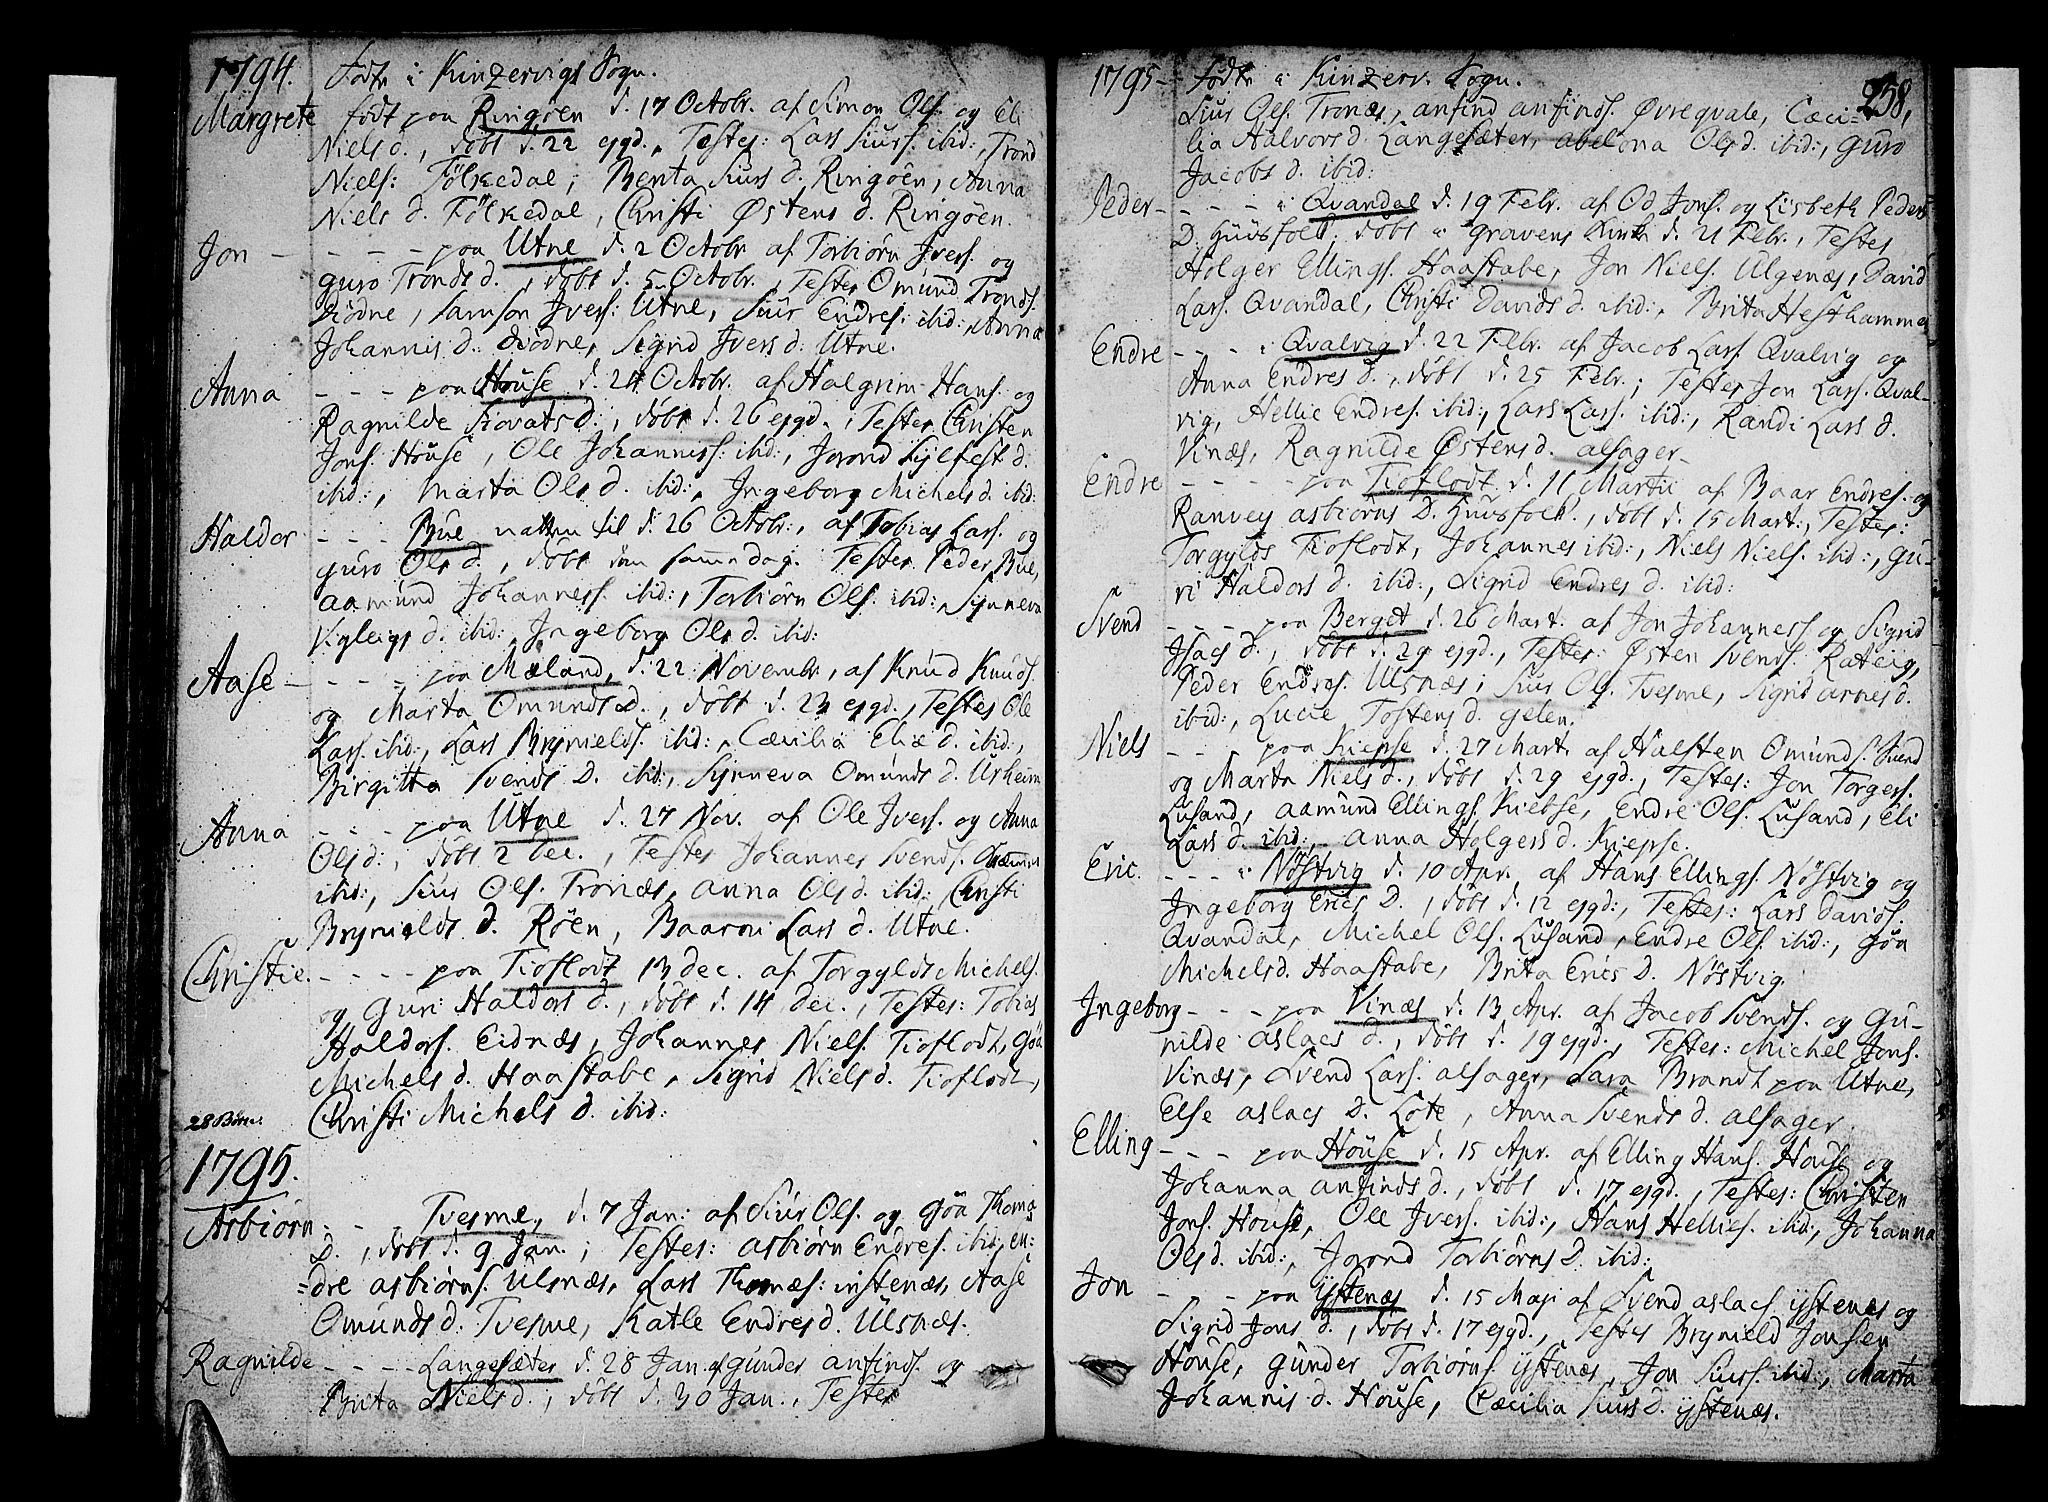 1794. Fødte i Kinzervigs Sogn.
Margrete født paa Ringøen d. 17 Octobr. af Simon Ols. og Eli
Niels d., døbt d. 22 ejgd., Testes: Lars Siurs. ibid:, Trond
Niels: Folkedal, Benta Siurs d. Ringøen, Anna
Niels d. Folkedal, Christi Østens d. Ringøen.
Jon - - - - paa Utne d. 2 Octobr. af Torbiörn Jvers. og
Guro Tronds d., døbt d. 5 Octobr., Testes Omund Tronds.
Diödne, Samson Jvers: Utne, Siur Endres: ibid:, Anna
Johannis d. Diödne, Sigrid Jvers d. Utne.
Anna - - - paa House d. 24 Octobr. af Halgrim Hans. og
Ragnilde Siovats d., döbt d. 26 ejgd., Testes Christen
Jons. House, Ole Johanness. ibid:, Jorond Sylfest d.
ibid:, Marta Ols d. ibid:, Ingeborg Michels d. ibid:
Haldor - - - Bue natten til d. 26 Octobr:, af Tobias Lars. og
Guro Ols d., døbt samme dag. Testes Peder Bue,
Aamund Johanness. ibid:, Torbiörn Ols. ibid:, Synneva
Vigleigs d. ibid: Ingeborg Ols d. ibid:
Aase - - - - paa Mæland, d. 22 Novembr., af Knud Knuds.
og Marta Omunds D., döbt d. 23 ejgd., Testes Ole
Lars. ibid:, Lars Brynields. ibid:, Cæcilia Eliæ d. ibid,
Birgitta Svends D. ibid:, Synneva Omunds d. Urheim
Anna - - - paa Utne d. 27 Nov. af Ole Jvers. og Anna
Ols d:, döbt 2 Dec., Testes Johannes Svends.
ibid:, Siur Ols. Tronæs, Anna Ols d. ibid: Christi
Brynields d. Röen, Baaroni Lars d. Utne.
Christie. - - - - paa Tioflodt 13 Dec. af Torgylds Michels.
og Guri Haldors d., döbt d. 14 Dec., Testes: Tobias
Haldors. Eidnæs, Johannes Niels. Tioflodt, Göa
Michels d. Haastabe, Sigrid Niels d. Tioflodt,
Christi Michels d. ibid:
28 Börn.
1795.
Asbiørn - - Tvesme, d. 7 Jan: af Siur Ols. og Göa Thomæ
D., döbt d. 9 Jan.; Testes: Asbiörn Endres. ibid:, En:
=dre Asbiörns. Ulsnæs, Lars Thomæs: istenæs, Aase
Omunds d. Tvesme, Katle Endres d. Ulsnæs.
Ragnilde - - - - Langesæter d. 28 Jan. af Gunder Anfinds. og
Brita Niels d., döbt d. 30 Jan., Testes
1795 - Fødte i Kinzerv. Sogn. 258,
Siur Ols. Tronæs, Anfind Anfinds. Øvreqvale, Cæci=
lia Halvors d. Langesæter, Abelona Ols d. ibid:, Guro
Jacobs d. ibid:
Peder - - - - i Qvandal d. 19 Febr. af Od Jons. og Lisbeth Peders
D. Huusfolk, döbt i Gravens Kirk d. 21 Febr., Testes
Holger Ellings. Haastabe, Jon Niels. Ulgenæs, David
Lars. Qvandal, Christi Davids d. ibid:, Brita Hesthammer
Endre - - - i Qvalvig d. 22 Febr. af Jacob Lars. Qvalvig og
Anna Endres d., döbt d. 25 Febr.; Testes Jon Lars. Qval-
vig, Hellie Endres. ibid:, Lars Lars. ibid:, Randi Lars d.
Vinæs, Ragnilde Østens d. Alsager -
Endre - - - - - paa Tioflodt d. 11 Martii af Baar Endres. og
Ranvey Asbiörns D. Huusfolk., döbt d. 15 Mart:, Testes:
Torgylds Tioflodt, Johannes ibid:, Niels Niels. ibid:, Gu-
ri Haldors d. ibid:, Sigrid Endres d. ibid:
Svend - - - - paa Berget d. 26 Mart. af Jon Johanness. og Sigrid
Jsacs d., döbt d. 29 ejgd., Testes: Østen Svends. Rateig,
Peder Endres. Ulsnæs, Siur Ols. Tvesme, Sigrid Arnes d.
ibid:, Lucie Tostens d. Gelen.
Niels - - - paa Kiepse d. 27 Mart. af Halsten Omunds. Svend
og Marta Niels d., döbt d. 29 ejgd., Testes: Jon Torgers.
Lusand, Aamund Ellings. Kiebse, Endre Ols. Lusand, Eli
Lars d. ibid:, Anna Holgers d. Kiepse.
Eric. - - - i Nöstvig d. 10 Apr. af Hans Ellings. Nöstvig og
Ingeborg Erics D., döbt d. 12 ejgd:, Testes: Lars Davids.
Qvandal, Michel Ols. Lusand, Endre Ols. ibid:, Göa
Michels d. Haastabe, Brita Erics D. Nöstvig.
Jngeborg - - - paa Vinæs d. 13 Apr. af Jacob Svends. og Gu-
nilde Aslacs d., döbt d. 19 ejgd., Testes: Michel Jons.
Vinæs, Svend Lars. Alsager, Sara Brandt paa Utne,
Else Aslacs D. Lote, Anna Svends d. Alsager.
Elling - - - paa House d. 15 Apr. af Elling Hans. House og
Johanna Anfinds d., döbt d. 17 ejgd., Testes: Christen
Jons. House, Ole Jvers. ibid:, Hans Hellies. ibid:, Johanna
Ols d. ibid:, Jorond Torbiörns D. ibid:
Jon - - - paa ystenæs d. 15 Maji af Svend Aslacs. ystenæs og
Sigrid Jons d., döbt d. 17 ejgd., Testes Brynield Jonsen
House, Gunder Torbiörns. ystenæs, Jon Siurs. ibid:, Marta
Johannis d. House, Cæcilia Siurs d. ystenæs.